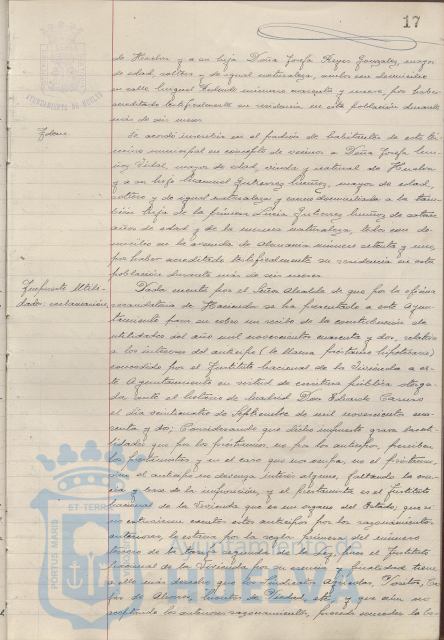 17
de Huelva y a su hija Doña Josefa Reyes González, mayor
de edad, soltera y de igual naturaleza, ambas con domicilio
en calle Miguel Redondo número cuarenta y nueve, por haber
acreditado testificalmente su residencia en esta población durante
más de seis meses
AYUNTAMIENTO DE HUELVA
Idem
Se acordó inscribir en el padrón de habitantes de este tér-
mino municipal en concepto de vecinos a Doña Josefa
Vidal, mayor de edad, viuda y natural de Huelva
y a su hijo Manuel Gutiérrez Muñoz, mayor de edad,
soltero y de igual naturaleza y como domiciliada a la tam-
bién hija de la primera Lucía Gutiérrez Muñoz de catorce
años de edad y de la misma naturaleza, todos con do-
micilio en la avenida de Alemania número setenta y uno,
por haber acreditado testificalmente su residencia en esta
población durante más de seis meses
Impuesto Utili-
dades: reclamación.
Dada cuenta por el Señor Alcalde de que por la oficina
recaudatoria de Hacienda se ha presentado a este Ayun-
tamiento para su cobro un recibo de la contribución de
utilidades del año mil novecientos cuarenta y dos, relativo
a los intereses del anticipo (le llama préstamo hipotecario)
concedido por el Instituto Nacional de la Vivienda a es-
te Ayuntamiento en virtud de escritura pública otorga-
da ante el Notario de Madrid Don Eduardo Casuso
el día veinticuatro de Septiembre de mil novecientos cua-
renta y dos; Considerando que dicho impuesto grava las uti-
lidades que por los préstamos, no por los anticipos, perciben
los prestamistas y en el caso que nos ocupa, no el préstamo,
sino el anticipo no devenga interés alguno, faltando la esen-
cia y base de la imposición, y el prestamista es el Instituto
Nacional de la Vivienda que es un órgano del Estado, que si
no estuvieran exentos estos anticipos por los razonamientos
anteriores, lo estarían por la regla primera del número
tercero de la tarifa segunda de la ley, pues el Instituto
Nacional de la Vivienda por su esencia y finalidad tiene
a ello más derecho que los Sindicatos Agrícolas, Pósitos, Ca-
jas de Ahorro, Montes de Piedad, etc., y que aún no
aceptando los anteriores razonamientos, procede conceder la
PORTUS MARIS ET TERRAE
Ayuntamiento de
HUELVA